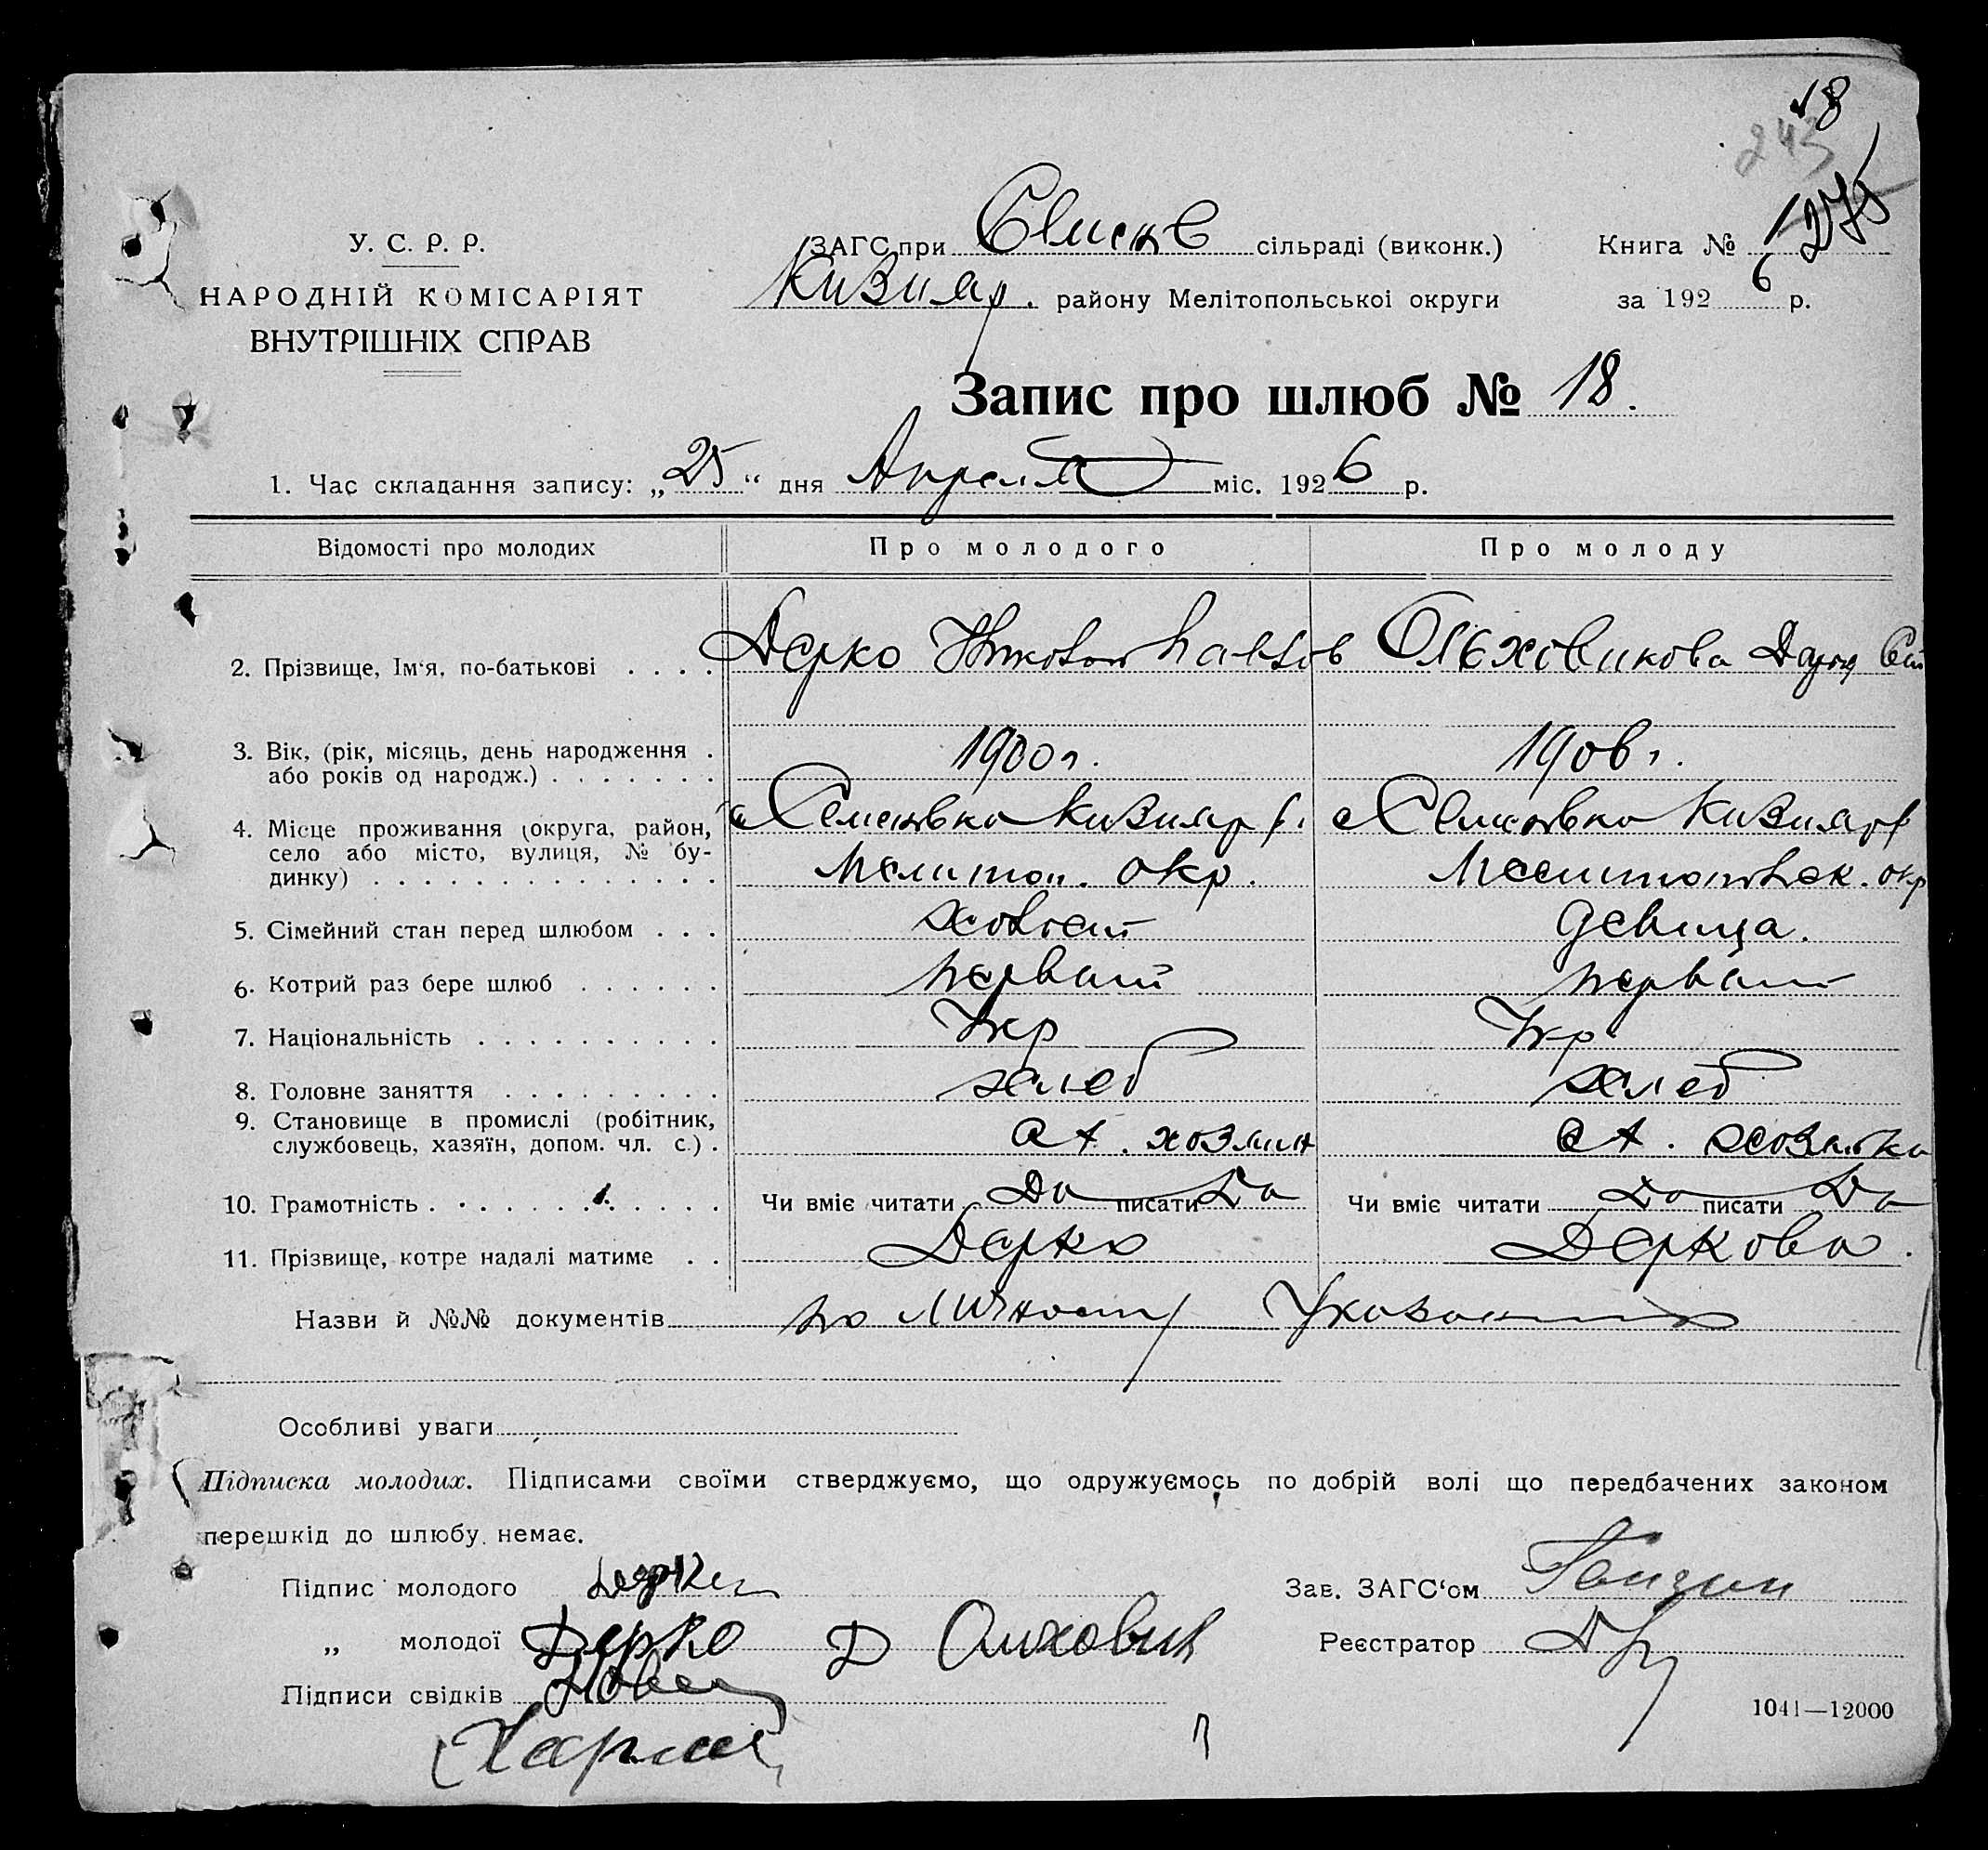 18
243
275
У. С. Р. Р.
НАРОДНІЙ КОМІСАРІЯТ
ВНУТРІШНІХ СПРАВ
ЗАГС при Семенов сільраді (виконк.) Книга № 1
Кизияр. району Мелітопольської округи за 1926 р.
Запис про шлюб № 18.
1. Час складання запису: „25“ дня Апреля міс. 1926 р.
Відомості про молодих Про молодого Про молоду
2. Прізвище, Ім'я, по-батькові . . . . Дерко Павлов Ольховикова Дария
3. Вік, (рік, місяць, день народження .
або років од народж.) . . . . . . . 1900 г. 1906 г.
4. Місце проживання (округа, район, с Семеновка Кизияр р. с Семеновка Кизияр р
село або місто, вулиця, № бу-
динку) . . . . . . . . . . . . . . Мелитоп. окр. Мелитопольск. окр
5. Сімейний стан перед шлюбом . . . холост девица.
6. Котрий раз бере шлюб . . . . . . первый первый
7. Національність . . . . . . . . . . Укр Укр
8. Головне заняття . . . . . . . . . хлеб хлеб
9. Становище в промислі (робітник,
службовець, хазяїн, допом. чл. с.) . хозяин хозяйка
10. Грамотність . . . . . . . . . . . Чи вміє читати Да писати Да Чи вміє читати Да писати Да
11. Прізвище, котре надалі матиме . . Дерко Деркова.
Назви й №№ документів по личност
Особливі уваги
Підписка молодих. Підписами своїми стверджуємо, що одружуємось по добрій волі що передбачених законом
перешкід до шлюбу немає.
Підпис молодого Дерко Зав. ЗАГС'ом
„ молодої Дерко Д Олховик Реєстратор
Підписи свідків
1041—12000